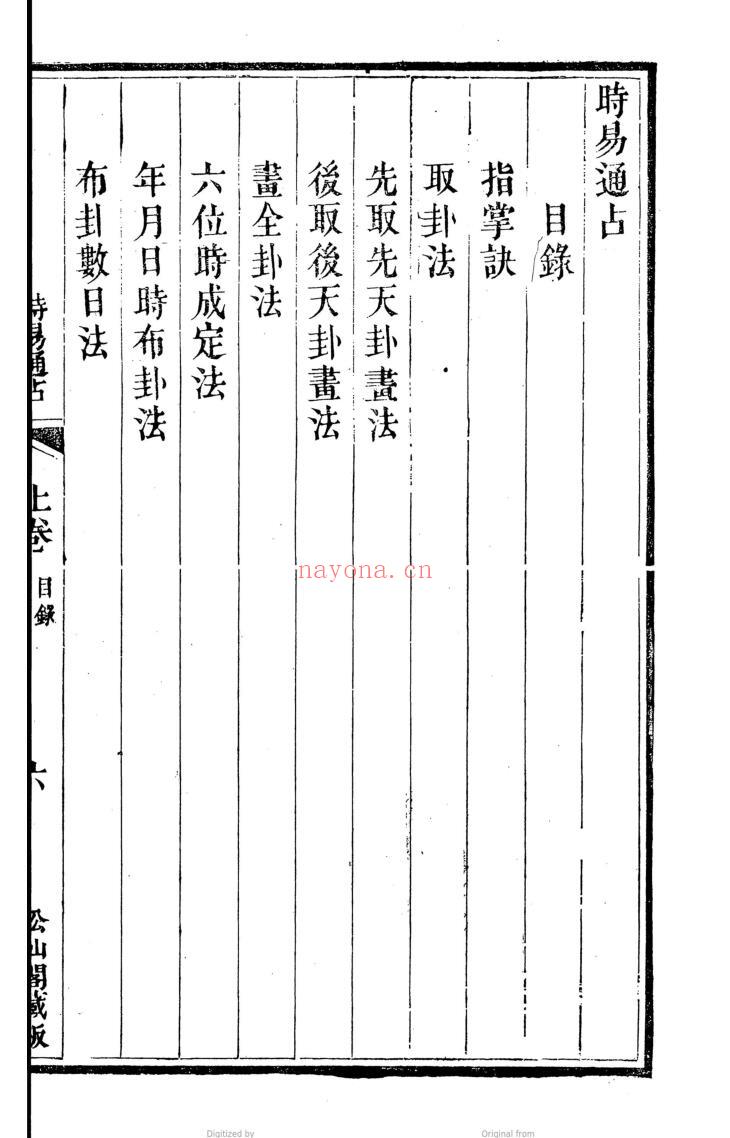 時易通占
目錄
指掌訣
取卦法
先取先天卦畫法
後取後天卦畫法
畫全卦法
六位時成定法
年月日時布卦法
布卦數日法
時易通占
上卷
目錄
六
山閣藏板
nayona.cn
Digitized by
Original from